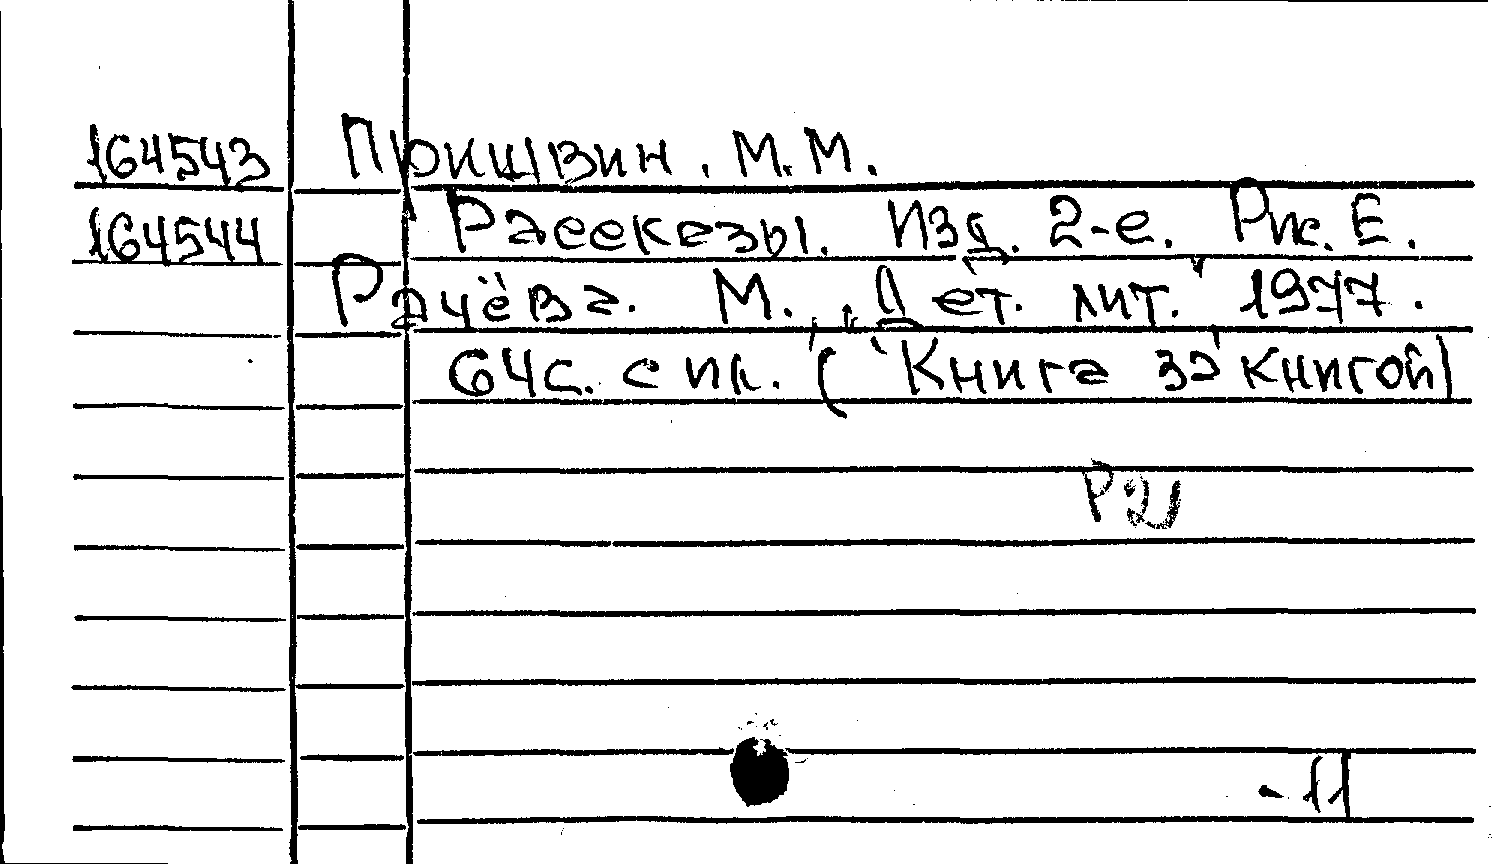 164543 Пришвин. М.М.
164544 Рассказы. Изд. 2-е. Рис. Е.
Рачёва. М., "Дет. лит." 1977.
64с. с ил. ("Книга за книгой)
Р2
-11